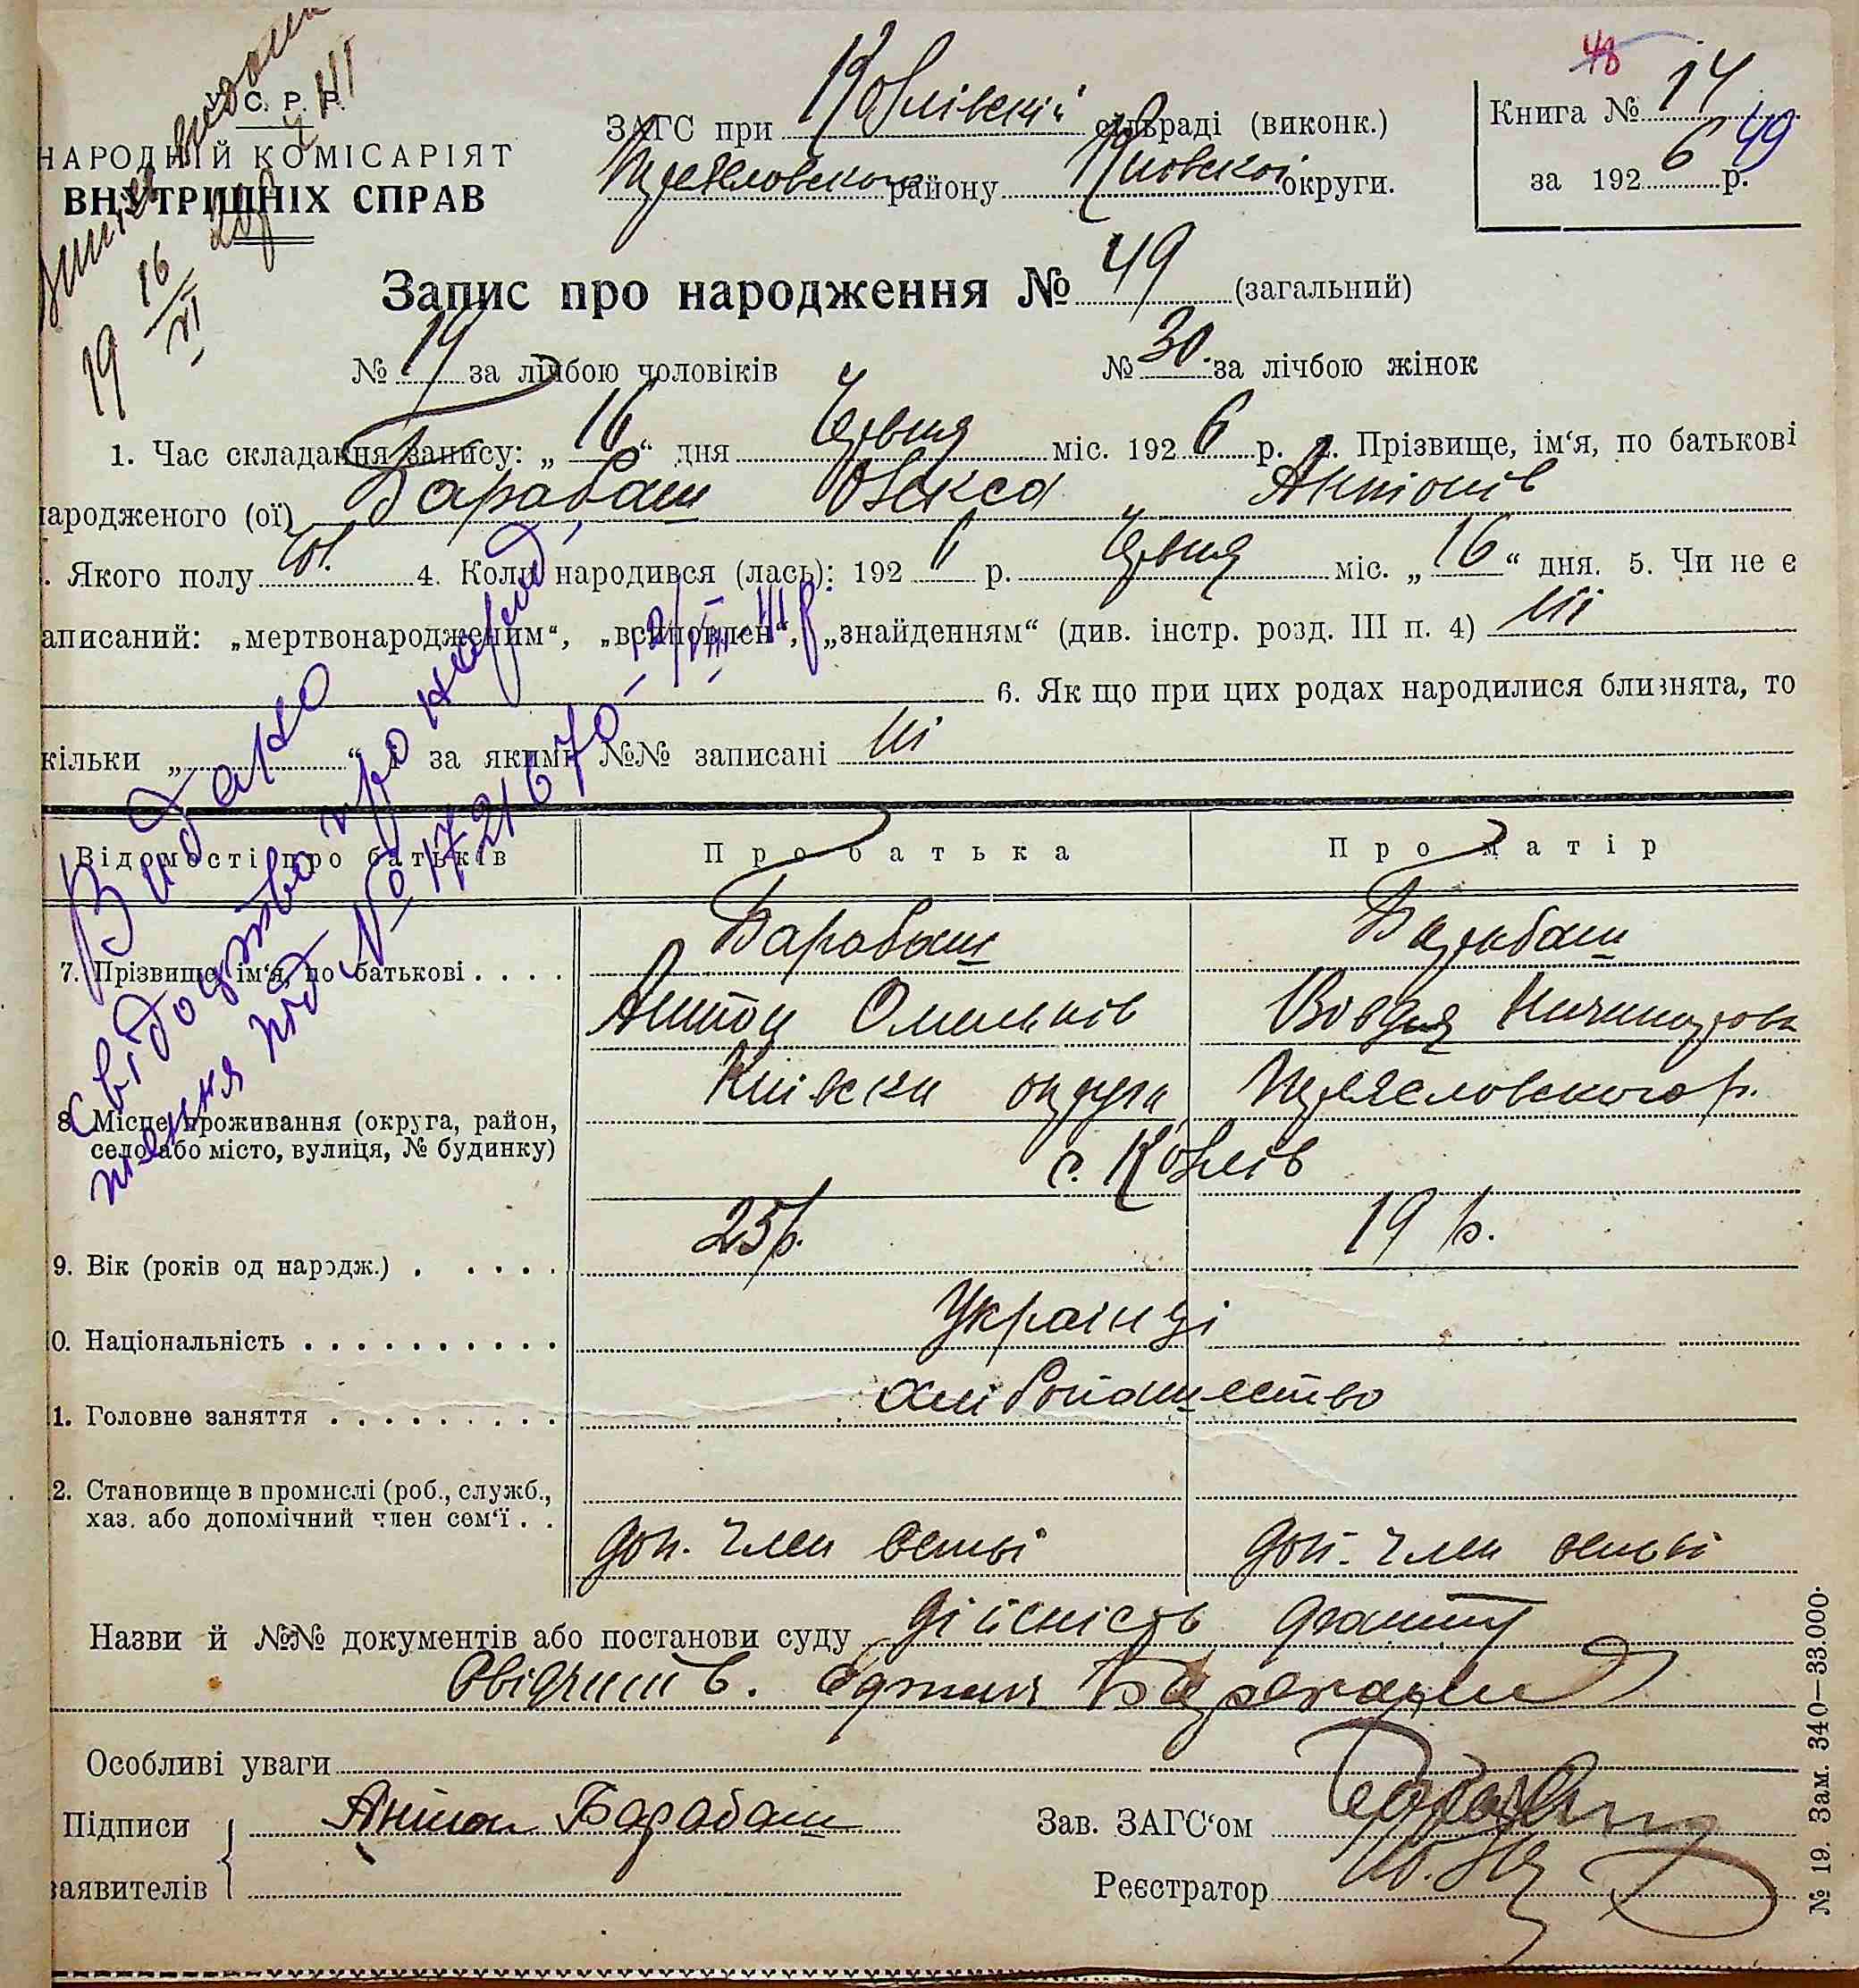 У. С. Р. Р.
НАРОДНІЙ КОМІСАРІЯТ
ВНУТРІШНІХ СПРАВ
19 16/VI
ЗАГС при Ковлівскій сільраді (виконк.)
району округи.
48
Книга № 14
49
за 192 6 р.
Запис про народження № 49 (загальний)
№ 19 за лічбою чоловіків
№ 30. за лічбою жінок
1. Час складання запису: „ 16 “ дня Червня міс. 192 6 р. 2. Прізвище, ім‘я, по батькові
народженого (ої) Барабаш Олекса Антонів
. Якого полу чол. 4. Коли народився (лась): 192 6 р. Червня міс. „ 16 “ дня. 5. Чи не є
аписаний: „мертвонародженим“, „всиновлен“, „знайденням“ (див. інстр. розд. III п. 4) ні
6. Як що при цих родах народилися близнята, то
кільки „ “ і за якими №№ записані ні
Видано
свідоцтво про народ
ження під № 1721670
12/VIII-41 р
Відомості про батьків
Про батька
Про матір
7. Прізвище, ім‘я, по батькові . . . .
Барабаш
Барабаш
Антон Омельків
Вовдя
8. Місце проживання (округа, район,
село або місто, вулиця, № будинку)
округа
с. Ковлів
9. Вік (років од народж.) . . . . .
25 р.
19 р.
0. Національність . . . . . . . . . .
Українці
1. Головне заняття . . . . . . . . .
хліборобство
2. Становище в промислі (роб., служб.,
хаз. або допомічний член сем‘ї . .
доп. член семьі
доп. член семьі
Назви й №№ документів або постанови суду дійсність факту
свідчить
Особливі уваги
Підписи
заявителів
Антон Барабаш
Зав. ЗАГС‘ом
Реєстратор
№ 19. Зам. 340—33.000.